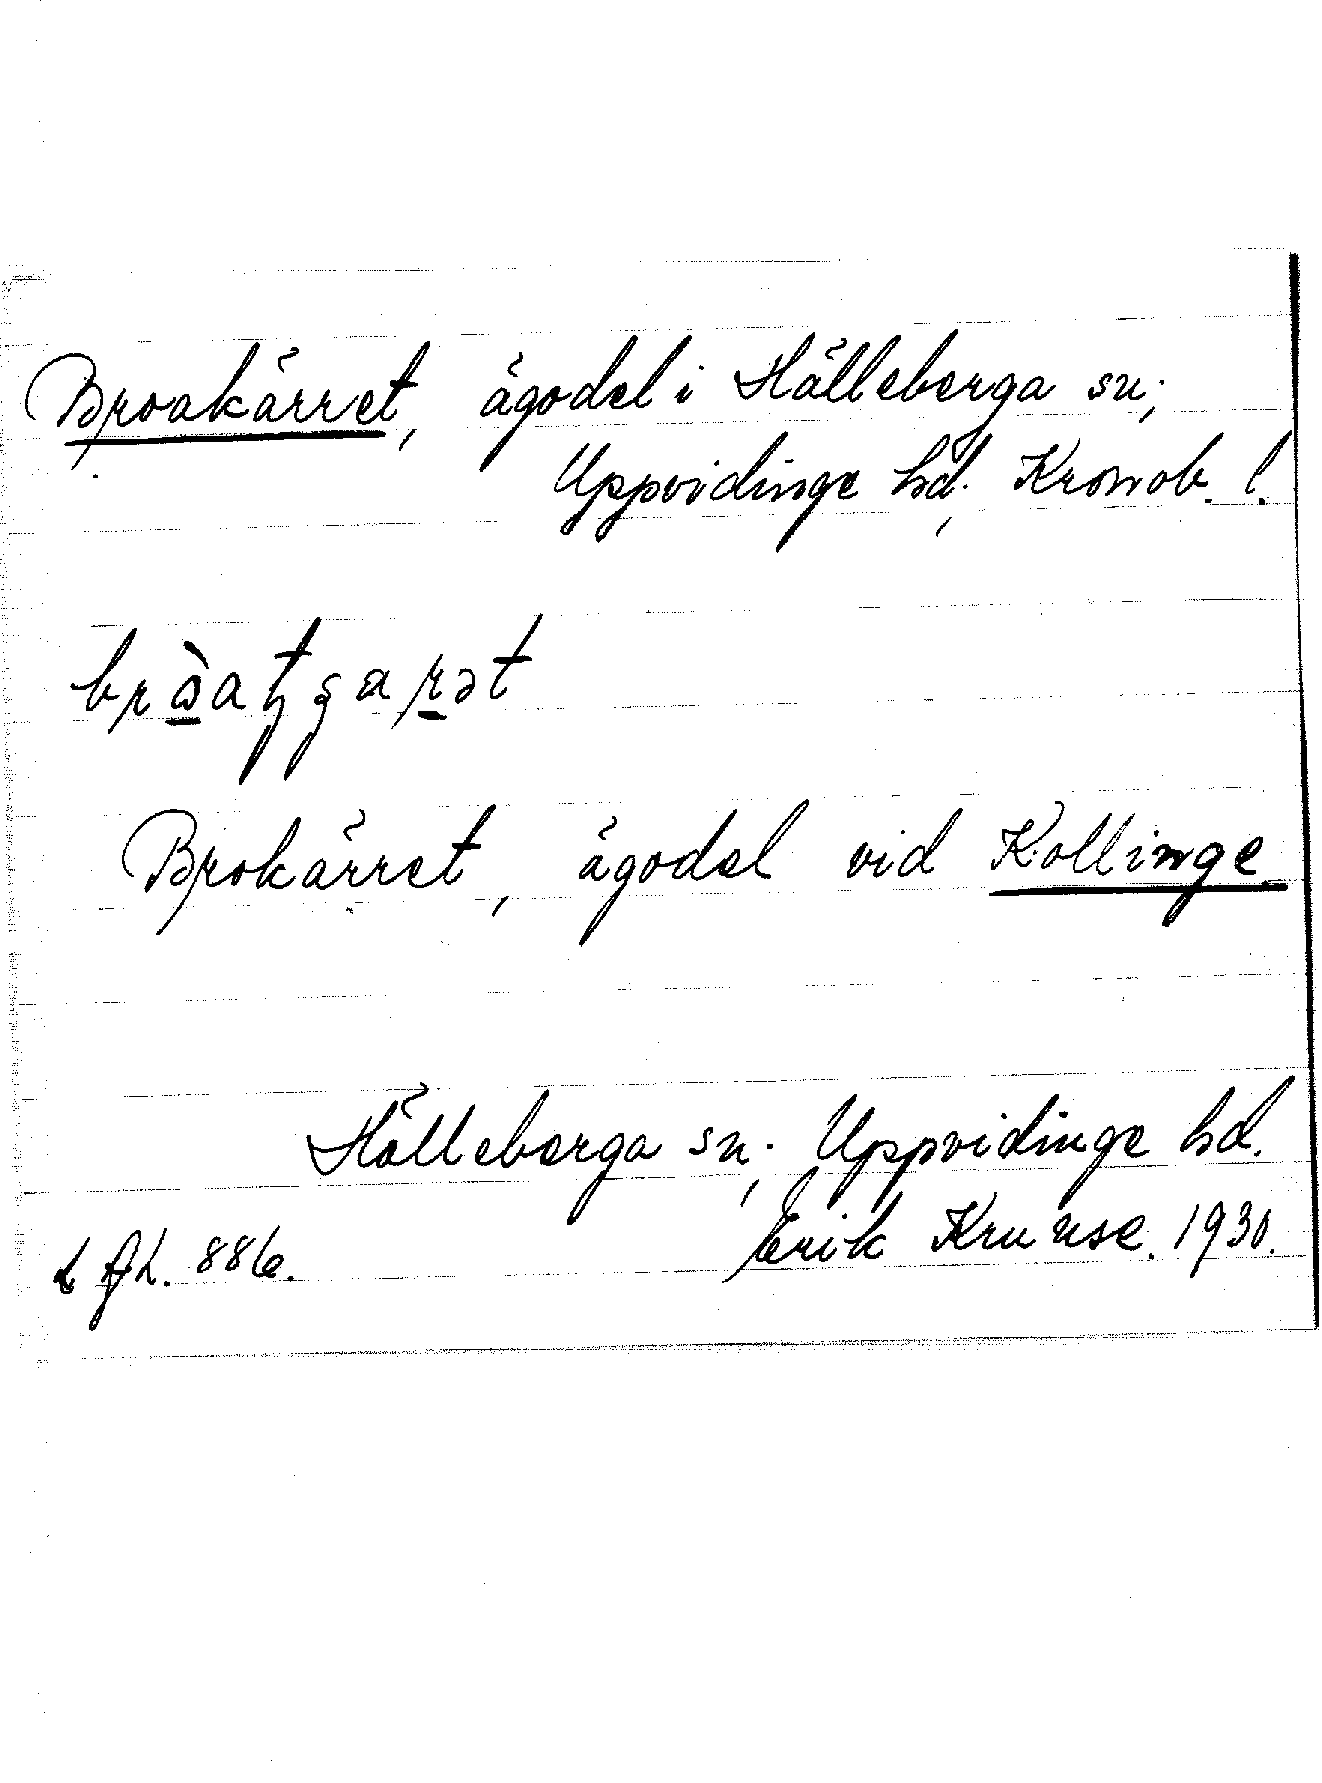 Broakärret, ägodel i Hälleberga sn;
Uppvidinge hd, Kronob. l.
Brokärret, ägodel vid Kollinge
Hälleberga sn; Uppvidinge hd.
Erik Kruuse. 1930.